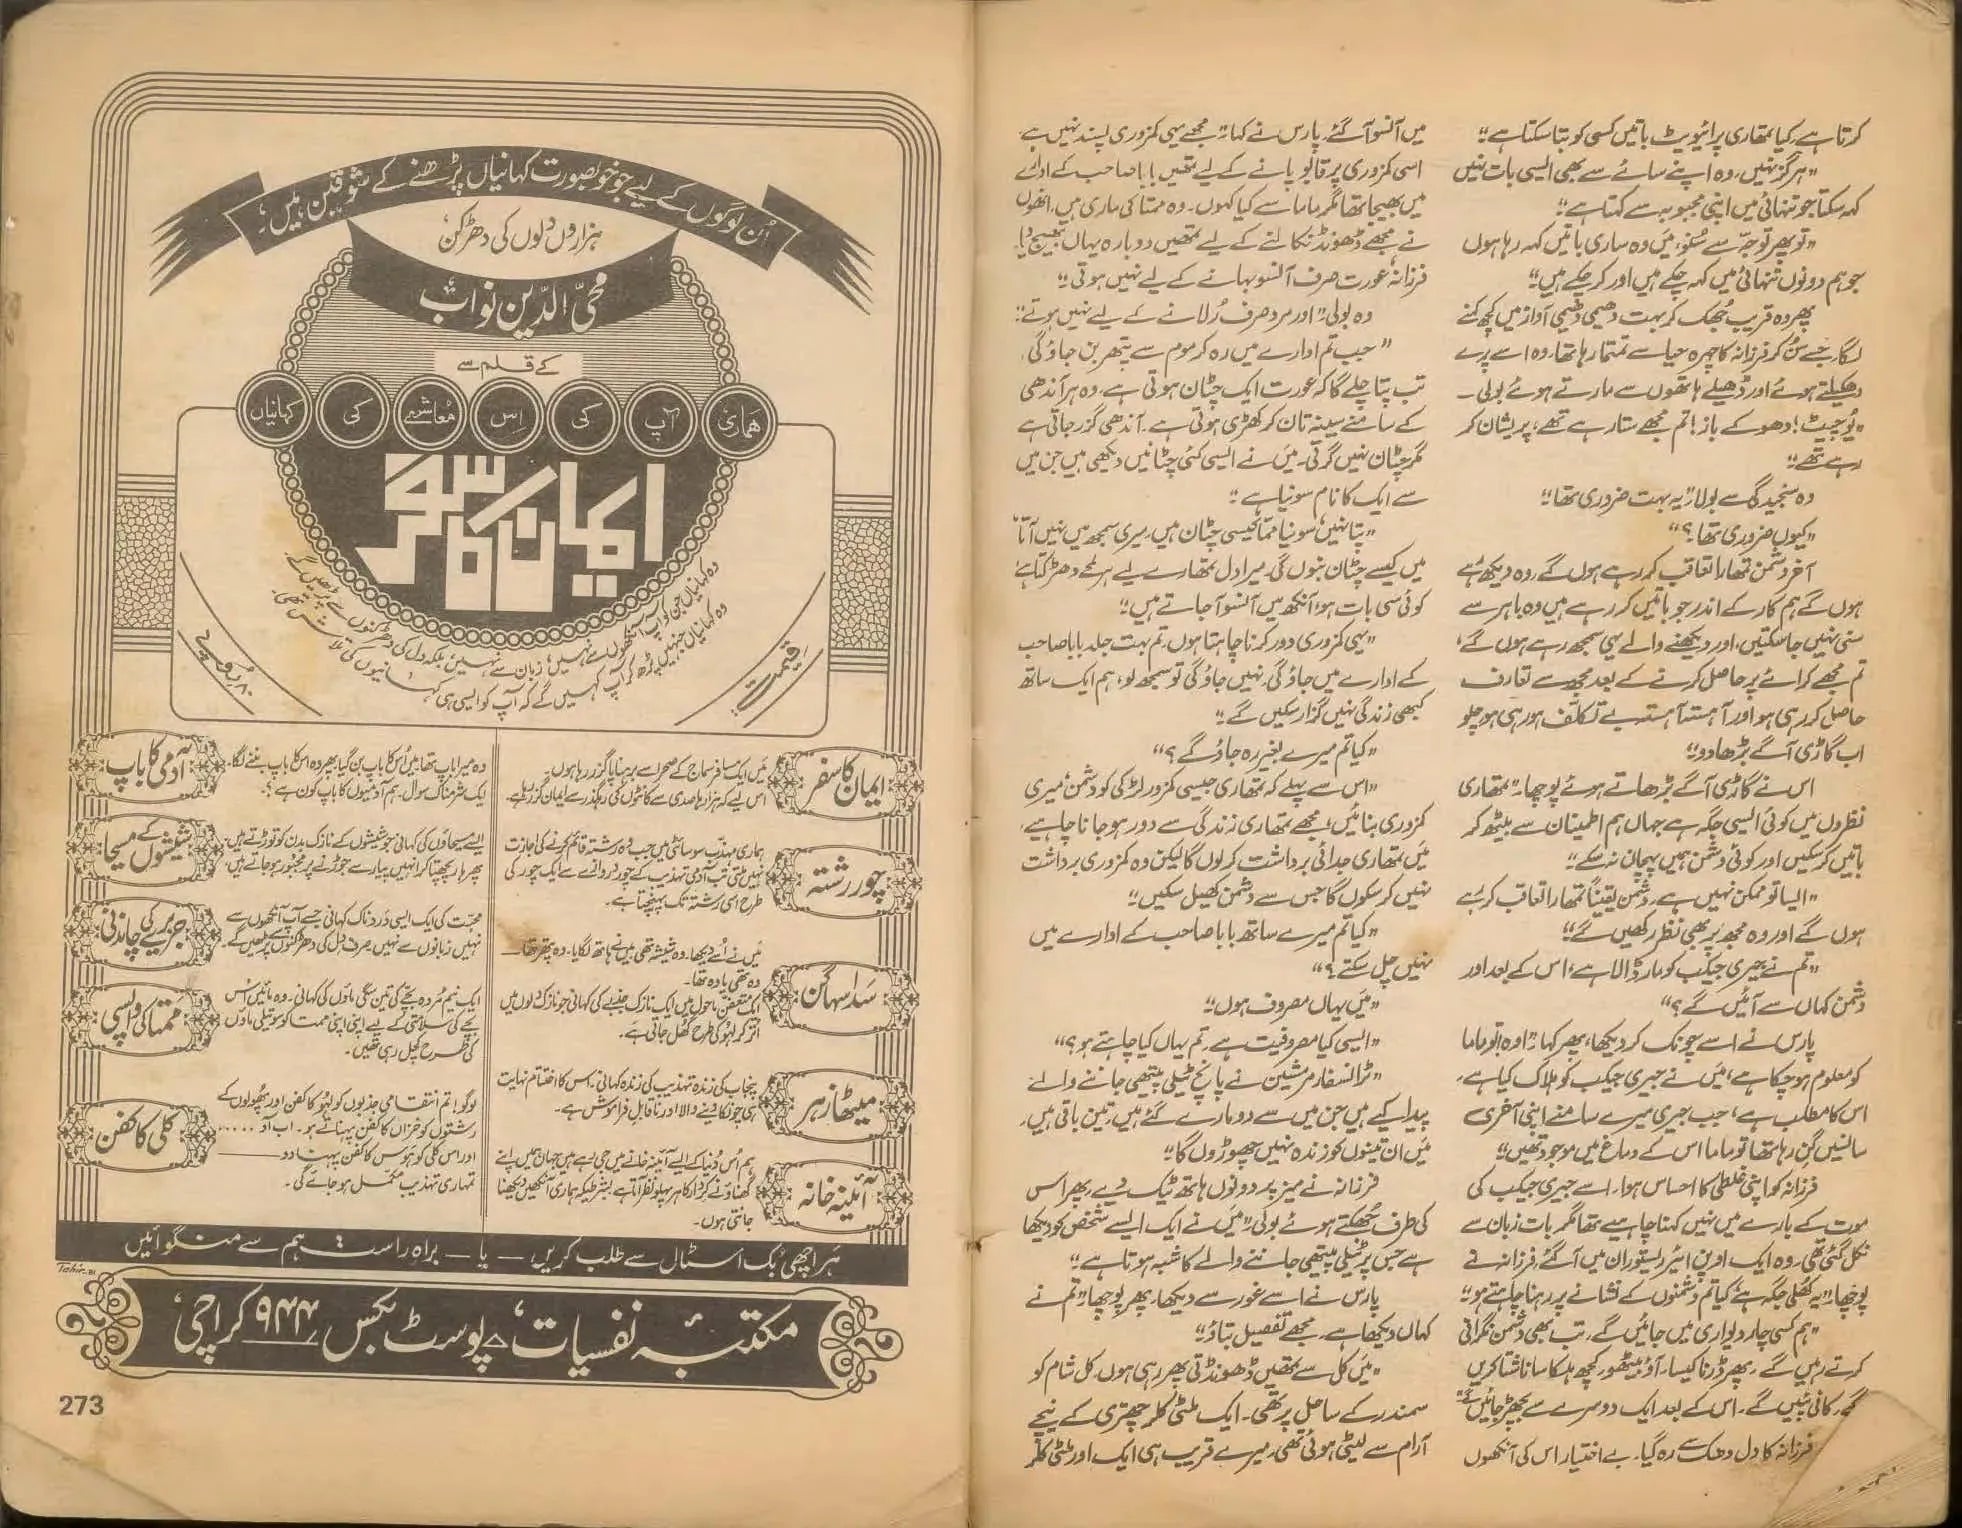 کرتا ہے۔ کیا تمھاری پرائیویٹ باتیں کسی کو بتا سکتا ہے؟"
"ہرگز نہیں، وہ اپنے سائے سے بھی ایسی بات نہیں
کہہ سکتا جو تنہائی میں اپنی محبوبہ سے کہتا ہے؟"
"تو پھر توجہ سے سُنو، میں وہ ساری باتیں کہہ رہا ہوں
جو ہم دونوں تنہائی میں کہہ چکے ہیں اور کر چکے ہیں؟"
پھر وہ قریب جھک کر بہت دھیمی دھیمی آواز میں کچھ کہنے
لگا، جسے سُن کر فرزانہ کا چہرہ حیا سے تمتما رہا تھا۔ وہ اسے پرے
دھکیلتے ہوئے اور ڈھیلے ہاتھوں سے مارتے ہوئے بولی۔
"یُو چیٹ! دھوکے باز! تم مجھے ستا رہے تھے، پریشان کر
رہے تھے؟"
وہ سنجیدگی سے بولا "یہ بہت ضروری تھا؟"
"کیوں ضروری تھا؟"
آخر دشمن تمھارا تعاقب کر رہے ہوں گے، وہ دیکھ رہے
ہوں گے ہم کار کے اندر جو باتیں کر رہے ہیں وہ باہر سے
سنی نہیں جا سکتیں، اور دیکھنے والے یہی سمجھ رہے ہوں گے،
تم مجھے کرائے پر حاصل کرنے کے بعد مجھ سے تعارف
حاصل کر رہی ہو اور آہستہ آہستہ بے تکلّف ہو رہی ہو چلو
اب گاڑی آگے بڑھا دو؟"
اس نے گاڑی آگے بڑھاتے ہوئے پوچھا "تمھاری
نظروں میں کوئی ایسی جگہ ہے جہاں ہم اطمینان سے بیٹھ کر
باتیں کر سکیں اور کوئی دشمن ہمیں پہچان نہ سکے؟"
"ایسا تو ممکن نہیں ہے۔ دشمن یقیناً تمھارا تعاقب کر رہے
ہوں گے اور وہ مجھ پر بھی نظر رکھیں گے؟"
"تم نے جیری جیکب کو مار ڈالا ہے، اس کے بعد اور
دشمن کہاں سے آئیں گے؟"
پارس نے اسے چونک کر دیکھا، پھر کہا "اوہ، تو ماما
کو معلوم ہو چکا ہے، میں نے جیری جیکب کو ہلاک کیا ہے۔
اس کا مطلب ہے، جب جیری میرے سامنے اپنی آخری
سانسیں گن رہا تھا تو ماما اس کے دماغ میں موجود تھیں؟"
فرزانہ کو اپنی غلطی کا احساس ہوا۔ اسے جیری جیکب کی
موت کے بارے میں نہیں کہنا چاہیے تھا مگر بات زبان سے
نکل گئی تھی۔ وہ ایک اوپن ائیر ریستوران میں آ گئے، فرزانہ نے
پوچھا "یہ کھلی جگہ ہے، کیا تم دشمنوں کے نشانے پر رہنا چاہتے ہو؟"
"ہم کسی چار دیواری میں جائیں گے۔ تب بھی دشمن نگرانی
کرتے رہیں گے۔ پھر ڈرنا کیسا۔ آؤ بیٹھو۔ کچھ ہلکا سا ناشتا کریں
گے، کافی پئیں گے۔ اس کے بعد ایک دوسرے سے بچھڑ جائیں گے"
فرزانہ کا دل دھک سے رہ گیا۔ بے اختیار اس کی آنکھوں
میں آنسو آ گئے۔ پارس نے کہا "مجھے یہی کمزوری پسند نہیں ہے،
اسی کمزوری پر قابو پانے کے لیے تمھیں بابا صاحب کے ادارے
میں بھیجا تھا مگر ماما سے کیا کہوں۔ وہ ممتا کی ماری ہیں، انھوں
نے مجھے ڈھونڈ نکالنے کے لیے تمھیں دوبارہ یہاں بھیج دیا۔
فرزانہ عورت صرف آنسو بہانے کے لیے نہیں ہوتی؟"
وہ بولی "اور مرد صرف رُلانے کے لیے نہیں ہوتے؟
"جب تم ادارے میں رہ کر موم سے پتھر بن جاؤ گی،
تب پتا چلے گا کہ عورت ایک چٹان ہوتی ہے۔ وہ ہر آندھی
کے سامنے سینہ تان کر کھڑی ہوتی ہے۔ آندھی گزر جاتی ہے
مگر چٹان نہیں گرتی۔ میں نے ایسی کئی چٹانیں دیکھی ہیں جن میں
سے ایک کا نام سونیا ہے؟
"پتا نہیں، سونیا ممّا کیسی چٹان ہیں۔ میری سمجھ میں نہیں آتا،
میں کیسے چٹان بنوں گی۔ میرا دل تمھارے لیے ہر لمحے دھڑکتا ہے
کوئی سی بات ہو، آنکھ میں آنسو آ جاتے ہیں؟"
"یہی کمزوری دور کرنا چاہتا ہوں۔ تم بہت جلد بابا صاحب
کے ادارے میں جاؤ گی۔ نہیں جاؤ گی تو سمجھ لو، ہم ایک ساتھ
کبھی زندگی نہیں گزار سکیں گے؟"
"کیا تم میرے بغیر رہ جاؤ گے؟"
"اس سے پہلے کہ تمھاری جیسی کمزور لڑکی کو دشمن میری
کمزوری بنائیں، مجھے تمھاری زندگی سے دور ہو جانا چاہیے،
میں تمھاری جدائی برداشت کر لوں گا لیکن وہ کمزوری برداشت
نہیں کر سکوں گا جس سے دشمن کھیل سکیں؟"
"کیا تم میرے ساتھ بابا صاحب کے ادارے میں
نہیں چل سکتے؟"
"میں یہاں مصروف ہوں؟"
"ایسی کیا مصروفیت ہے۔ تم یہاں کیا چاہتے ہو؟"
"ٹرانسفارمر مشین نے پانچ ٹیلی پیتھی جاننے والے
پیدا کیے ہیں جن میں سے دو مارے گئے ہیں، تین باقی ہیں۔
میں ان تینوں کو زندہ نہیں چھوڑوں گا؟"
فرزانہ نے میز پر دونوں ہاتھ ٹیک دیے، پھر اس
کی طرف جُھکتے ہوئے بولی "میں نے ایک ایسے شخص کو دیکھا
ہے جس پر ٹیلی پیتھی جاننے والے کا شبہ ہوتا ہے؟"
پارس نے اسے غور سے دیکھا، پھر پوچھا "تم نے
کہاں دیکھا ہے۔ مجھے تفصیل بتاؤ؟"
"میں کل سے تمھیں ڈھونڈتی پھر رہی ہوں، کل شام کو
سمندر کے ساحل پر تھی۔ ایک ملٹی کلر چھتری کے نیچے
آرام سے لیٹی ہوئی تھی، میرے قریب ہی ایک اور ملٹی کلر
اُن لوگوں کے لیے جو خوبصورت کہانیاں پڑھنے کے شوقین ہیں،
ہزاروں دلوں کی دھڑکن،
محیّ الدّین نواب
کے قلم سے
ہماری آپ کی اِس معاشرے کی کہانیاں
ایمان کا سفر
وہ کہانیاں جن کو آپ آنکھوں سے نہیں، زبان سے نہیں، بلکہ دل کی دھڑکنوں سے پڑھیں گے۔
وہ کہانیاں جنہیں پڑھ کر آپ کہیں گے کہ آپ کو ایسی ہی کہانیوں کی تلاش تھی۔
قیمت:
۸۰ روپے
ایمان کا سفر:
میں ایک مسافر سماج کے صحرا سے برہنہ پا گزر رہا ہوں۔
اس لیے کہ ہزارہا صدی سے کانٹوں کی رہگذر سے ایمان گزر رہا ہے۔
چور رشتہ:
ہماری مہذّب سوسائٹی میں جب وہ رشتہ قائم کرنے کی اجازت
نہیں ملتی تب آدمی تہذیب کے چور دروازے سے ایک چور کی
طرح اسی رشتہ تک پہنچتا ہے۔
سدا سہاگن:
میں نے اُسے دیکھا۔ وہ شیشہ تھی، میں نے ہاتھ لگایا۔ وہ پتھر تھا
وہ تھی یا وہ تھا۔
ایک متعفن ماحول میں ایک نازک جذبے کی کہانی جو نازک دلوں میں
اُتر کر لہو کی طرح گھل جاتی ہے۔
میٹھا زہر
پنجاب کی زندہ تہذیب کی زندہ کہانی۔ اس کا اختتام نہایت
ہی چونکا دینے والا اور ناقابل فراموش ہے۔
آئینہ خانہ
ہم اُس دُنیا کے ایسے آئینہ خانے میں جی رہے ہیں جہاں ہمیں اپنے
گھناؤنے کردار کا ہر پہلو نظر آتا ہے بشرطیکہ ہماری آنکھیں دیکھنا
جانتی ہوں۔
آدمی کا باپ:
وہ میرا باپ تھا، میں اُس کا باپ بن گیا پھر وہ اس کا باپ بننے لگا۔
ایک شرمناک سوال۔ ہم آدمیوں کا باپ کون ہے؟۔
شیشوں کے مسیحا:
ایسے مسیحاؤں کی کہانی جو شیشوں کے نازک بدن کو توڑتے ہیں۔
پھر ہار پچھتا کر انہیں پیار سے جوڑنے پر مجبور ہو جاتے ہیں۔
جزیرے کی چاندنی:
محبّت کی ایک ایسی دردناک کہانی جسے آپ آنکھوں سے
نہیں زبانوں سے نہیں۔ صرف دل کی دھڑکنوں سے پڑھیں گے۔
ممتا کی واپسی:
ایک نیم مُردہ بچّے کی تین سگی ماؤں کی کہانی۔ وہ مائیں اس
بچے کی سلامتی کے لیے اپنی اپنی ممتا کو سوتیلی ماؤں
کی طرح کچل رہی تھیں۔
کلی کا کفن
لوگو! تم انتقامی جذبوں کو لہو کا کفن اور پھولوں کے
رشتوں کو خزاں کا کفن پہناتے ہو۔ اب آؤ .....
اور اس کلی کو ہوس کا کفن پہنا دو
تمہاری تہذیب مکمّل ہو جائے گی۔
ہر اچھی بُک اسٹال سے طلب کریں — یا — براہ راست ہم سے منگوائیں
Tahir.81
مکتبۂ نفسیات، پوسٹ بکس ۹۴۴، کراچی،
273